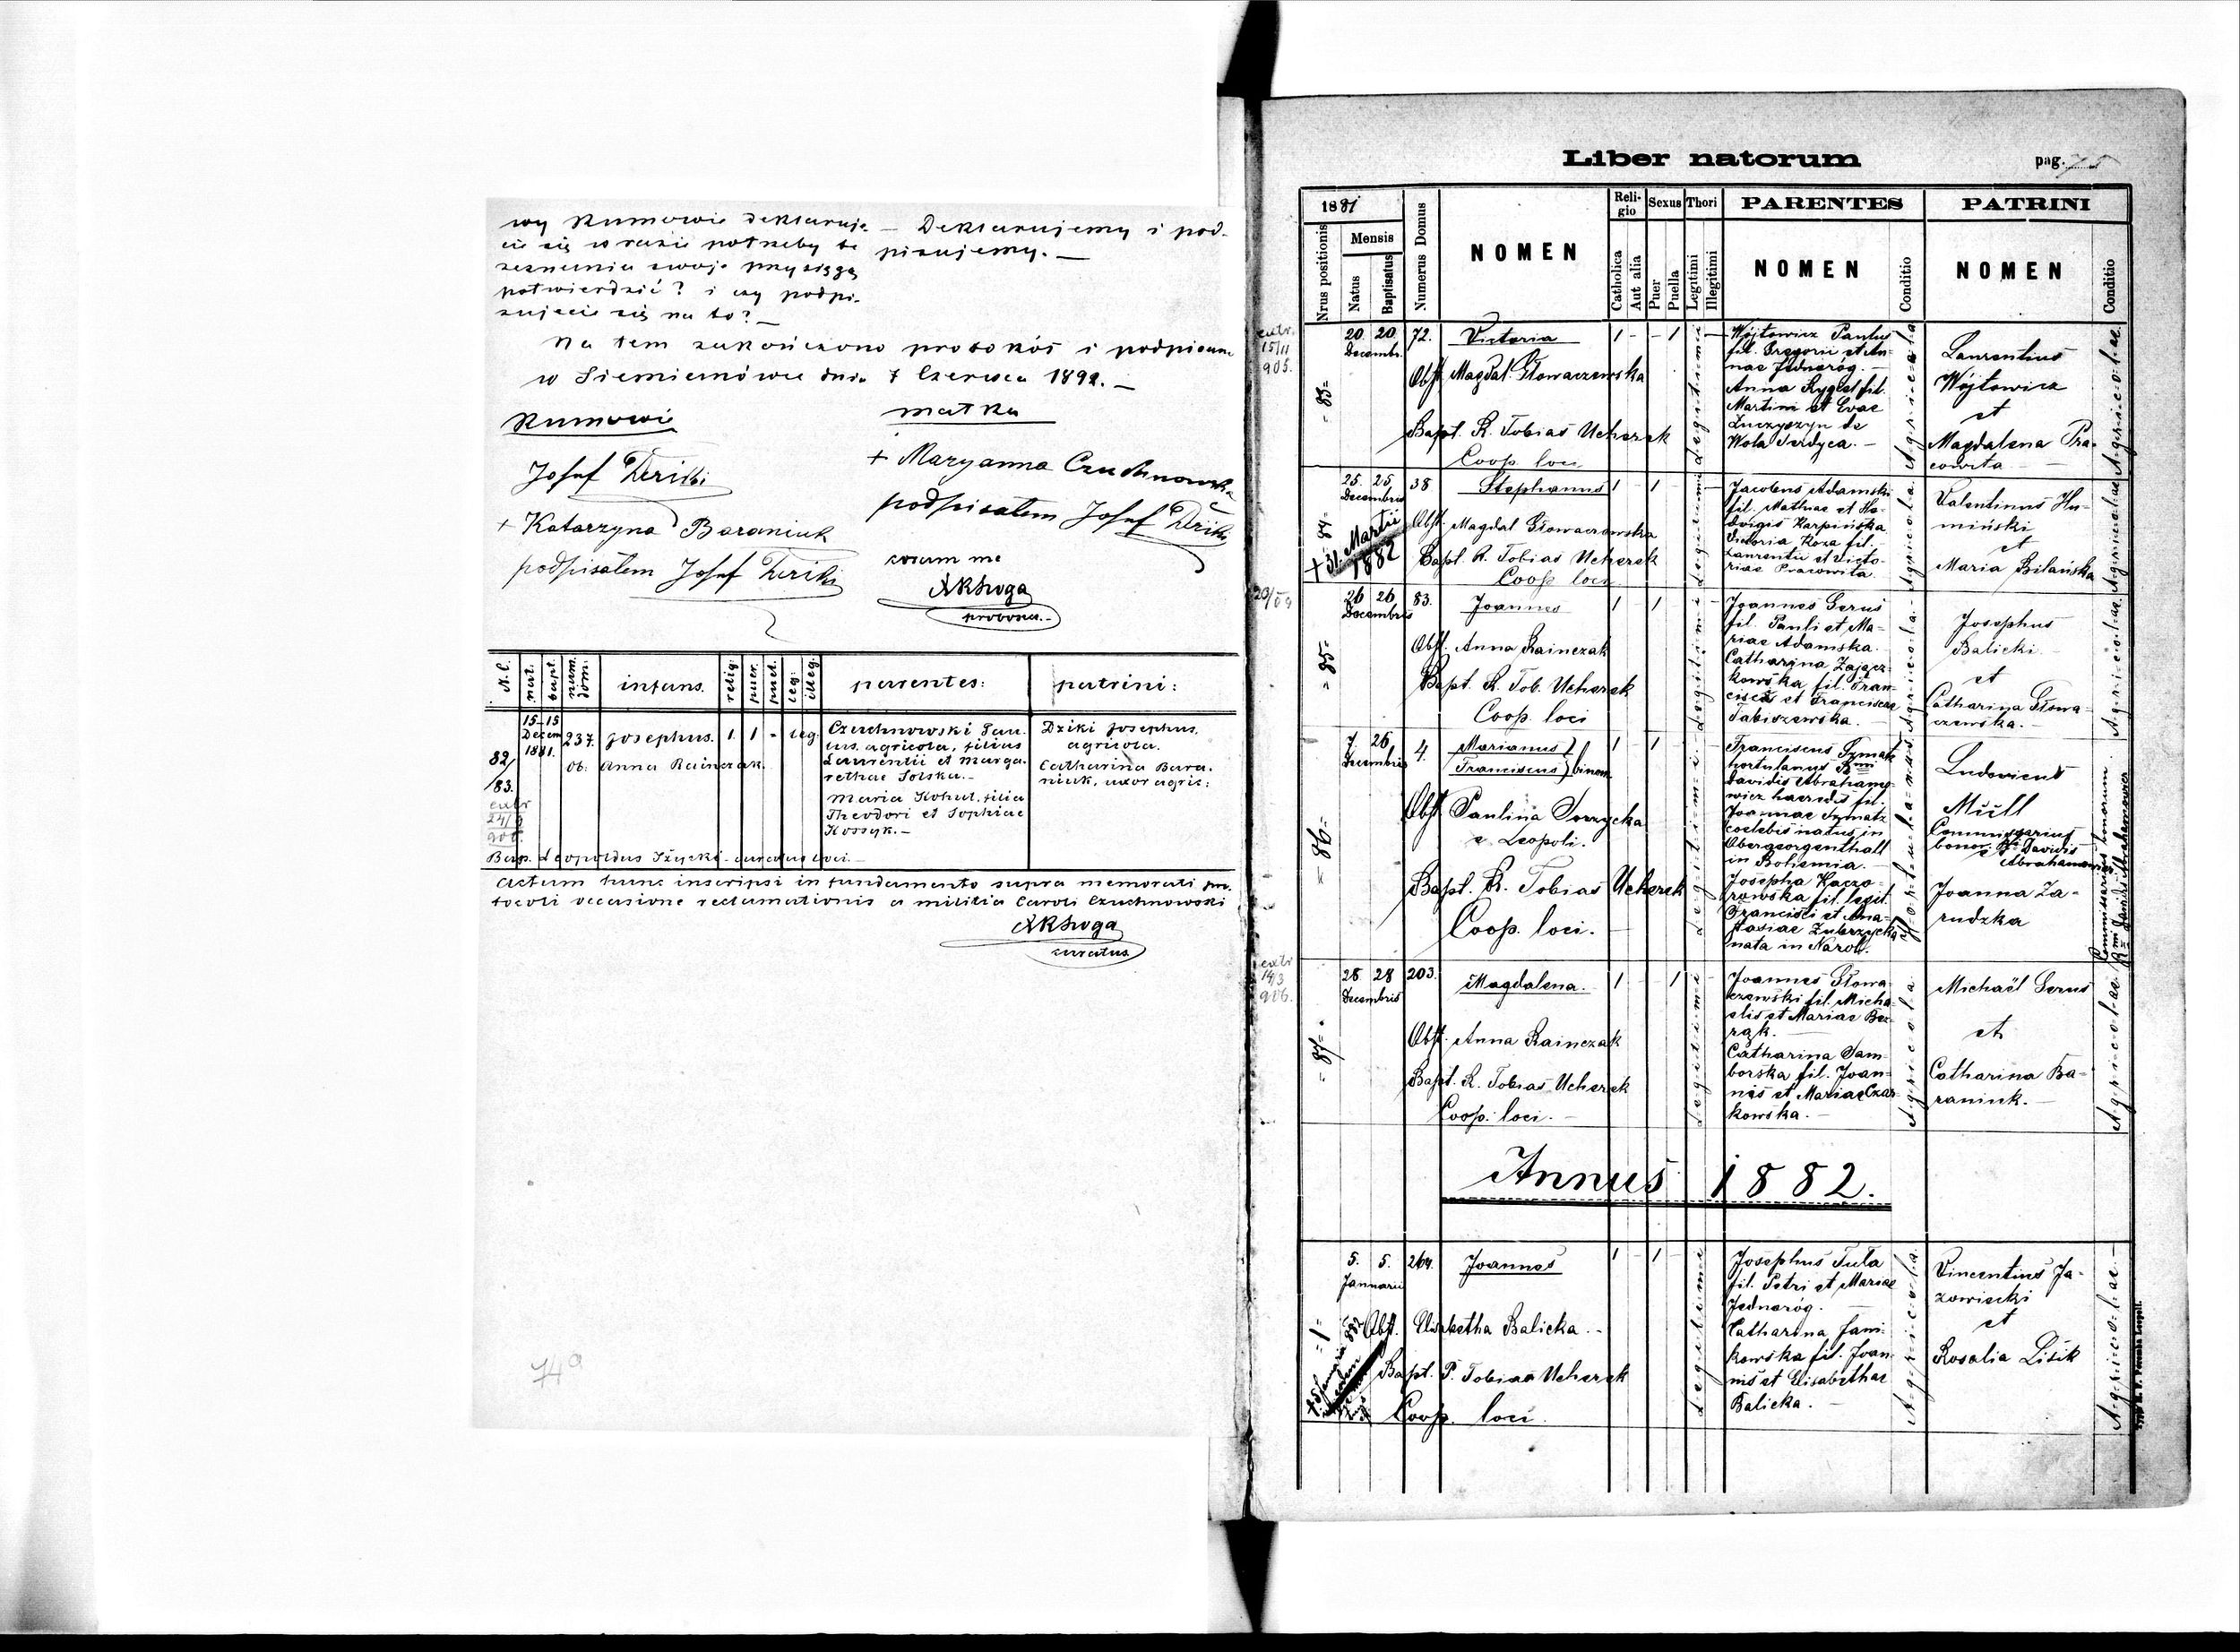 wy Kumowie deklaruje
cie się w razie potrzeby te
zeznania swoje przysięgą
potwierdzić? i czy podpi-
sujecie się na to? —
— Deklarujemy i pod-
pisujemy. —
Na tem zakończono protokół i podpisano
w Siemianówce dnia 7 Czerwca 1892. —
Kumowie
Josef Dziki
+ Katarzyna Baraniuk
podpisałem Josef Dziki
matka
+ Maryanna Czuchnowska
podpisałem Josef Dziki
coram me
proboszcz.
N. C. nat. bapt. num. dom. infans. relig. puer. puel. leg. illeg. parentes: patrini:
82/83. 15 15 Decem 1881. 237. Josephus. 1. 1 - leg.
ob. Anna Rainczak.
extr
24/9
906.
Czuchnowski Pau-
lus, agricola, filius
Laurentii et Marga-
rethae Solska. —
Maria Kohut, filia
Theodori et Sophiae
Kossyk. —
Dziki Josephus,
agricola.
Catharina Bara-
niuk, uxor agric:
Bap. Leopoldus Iżycki - curatus loci. —
Actum hunc inscripsi in fundamento supra memorati pro-
tocoli occasione reclamationis a militia Caroli Czuchnowski
curatus
74a
Liber natorum
pag. 75
1881
Nrus positionis
Mensis
Natus
Baptisatus
Numerus Domus
NOMEN
Religio
Catholica
Aut alia
Sexus
Puer
Puella
Thori
Legitimi
Illegitimi
PARENTES
NOMEN
Conditio
PATRINI
NOMEN
Conditio
extr.
15/11
905.
= 83 =
20. 20. 72. Victoria 1 - - 1
Decembr.
Obst. Magdal. Głowaczewska
Bapt. R. Tobias Ucherek
Coop. loci
Legitimi
Wójtowicz Paulus
fil. Gregorii et An-
nae Jednoróg. —
Anna Rygiel fil.
Martini et Evae
Łuczyszyn de
Wola Serdyca. —
Agricola
Laurentius
Wójtowicz
et
Magdalena Pra-
cowita —
Agricolae
= 84 =
+ 31. Martii
1882
25. 25. 38 Stephanus 1 - 1
Decembris
Obst. Magdal Głowaczewska
Bapt. R. Tobias Ucherek
Coop loci
Legitimi
Jacobus Adamski
fil. Mathiae et He-
dvigis Karpińska
Victoria Koza fil.
Laurentii et Victo-
riae Pracowita.
Agricola
Valentinus Hu-
miński
et
Maria Bilańska
Agricolae
= 85 =
26 26 83. Joannes 1 1
Decembris
Obst. Anna Rainczak
Bapt. R. Tob. Ucherek
Coop. loci
Legitimi
Joannes Serus
fil. Pauli et Ma-
riae Adamska.
Catharina Zając-
kowska fil. Fran-
cisci et Franciscae
Fabiszewska. —
Agricola
Josephus
Balicki
et
Catharina Głowa-
czewska. —
Agricolae
= 86 =
7. 26 4. Marianus } 1 - 1
Decembris Franciscus } binom
Obst. Paulina
e Leopoli.
Bapt. R. Tobias Ucherek
Coop. loci.
Legitimi
Franciscus Szmatz
hortulanus Rmi
Davidis Abrahamo-
wicz haeredis fil.
Joannae Szmatz
coelebis natus in
Obergeorgenthall
in Bohemia. —
Josepha Kaczo-
rowska fil. legit.
Francisci et Ana-
stasiae Zubrzycka
nata in Narol.
Hortulanus
Ludovicus
Müll
Commissarius
bonor. Davidis
Abrahamowicz
Joanna Za-
rudzka
Commissarius bonorum
Davidis Abrahamowicz
extr
14/3
906.
= 87 =
28 28 203. Magdalena. 1 - - 1
Decembris
Obst. Anna Rainczak
Bapt. R. Tobias Ucherek
Coop. loci. —
Legitimi
Joannes Głowa-
czewski fil. Micha-
elis et Mariae Bez-
rąk. —
Catharina Sam-
borska fil. Joan-
nis et Mariae Czar-
kowska. —
Agricola
Michaël Serus
et
Catharina Ba-
raniuk. —
Agricolae
Annus 1882.
= 1 =
5. 5. 264. Joannes 1 - 1
Januarii
Obst. Elisabetha Balicka. -
Bapt. P. Tobias Ucherek
Coop. loci.
Legitimi
Josephus Tuta
fil. Petri et Mariae
Jednoróg. —
Catharina Jani-
kowska fil. Joan-
nis et Elisabethae
Balicka. —
Agricola
Vincentius Ja-
zowiecki
et
Rosalia Lisik
Agricolae